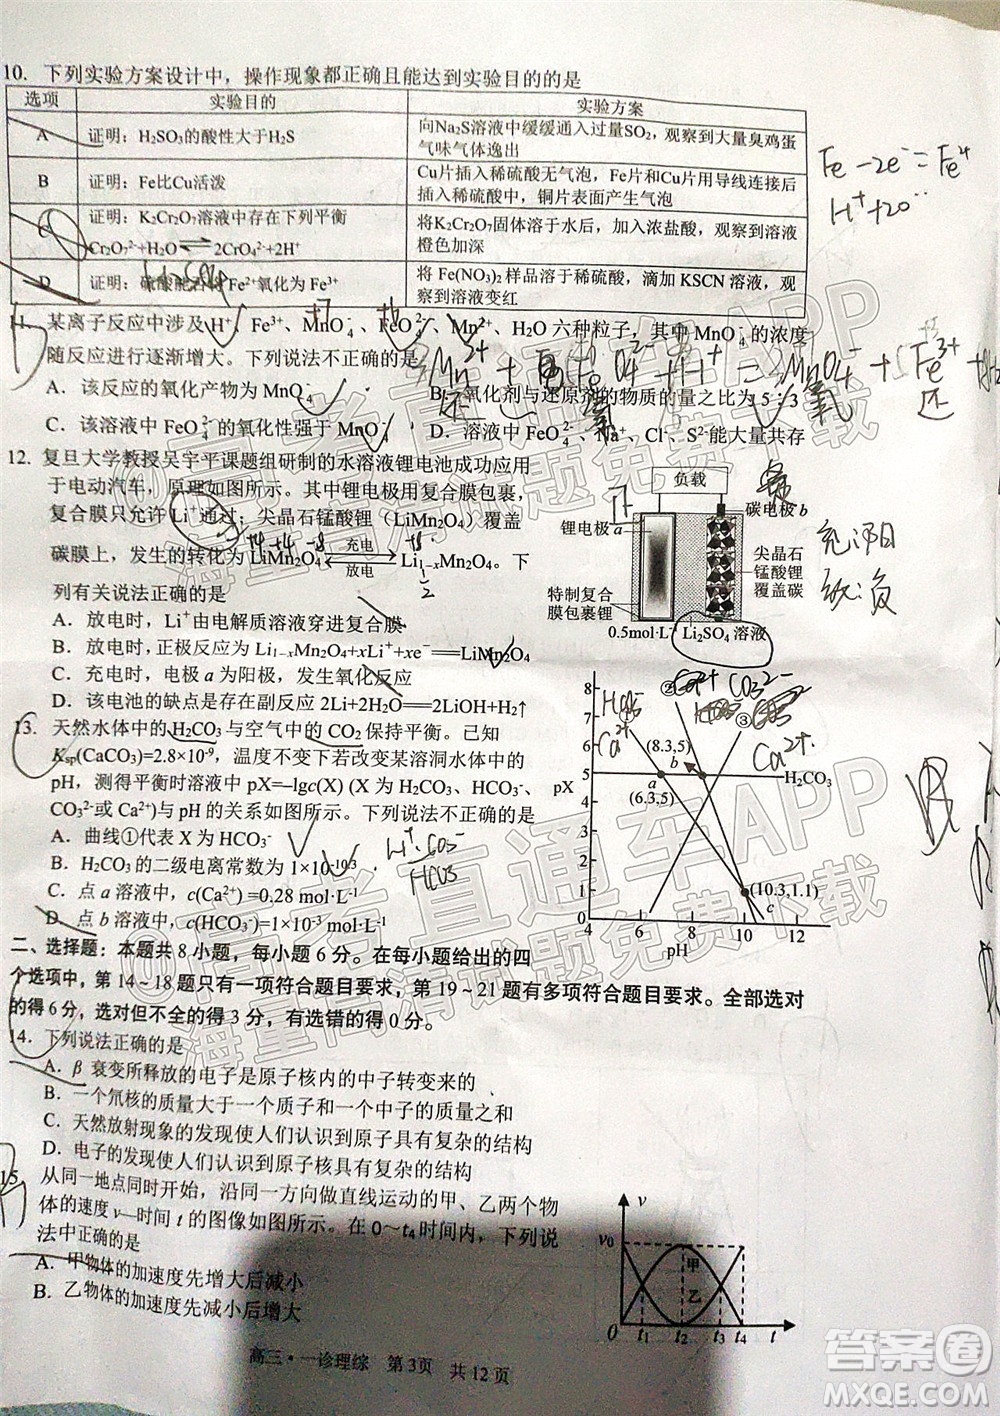 10. 下列实验方案设计中，操作现象都正确且能达到实验目的的是
选项 实验目的 实验方案
A 证明：H₂SO₃的酸性大于H₂S 向Na₂S溶液中缓缓通入过量SO₂，观察到大量臭鸡蛋
气味气体逸出
B 证明：Fe比Cu活泼 Cu片插入稀硫酸无气泡，Fe片和Cu片用导线连接后
插入稀硫酸中，铜片表面产生气泡
C 证明：K₂Cr₂O₇溶液中存在下列平衡
Cr₂O₇²⁻+H₂O⇌2CrO₄²⁻+2H⁺
将K₂Cr₂O₇固体溶于水后，加入浓盐酸，观察到溶液
橙色加深
D Fe²⁺氧化为 Fe³⁺ 将 Fe(NO₃)₂ 样品溶于稀硫酸，滴加 KSCN 溶液，观
察到溶液变红
Fe - 2e⁻ =
11. 某离子反应中涉及 H⁺、Fe³⁺、MnO₄⁻、FeO₄²⁻、Mn²⁺、H₂O 六种粒子，其中 MnO₄⁻ 的浓度
随反应进行逐渐增大。下列说法不正确的是
A．该反应的氧化产物为 MnO₄⁻ B．氧化剂与还原剂的物质的量之比为 5∶3
C．该反应 FeO₄²⁻ 的氧化性强于 MnO₄⁻ D．溶液中 FeO₄²⁻、Na⁺、Cl⁻、S²⁻能大量共存
12. 复旦大学教授吴宇平课题组研制的水溶液锂电池成功应用
于电动汽车，原理如图所示。其中锂电极用复合膜包裹，
复合膜只允许 Li⁺通过；尖晶石锰酸锂（LiMn₂O₄）覆盖
碳膜上，发生的转化为 LiMn₂O₄ 充电 放电 Li₁₋ₓMn₂O₄。下
列有关说法正确的是
A．放电时，Li⁺由电解质溶液穿进复合膜
B．放电时，正极反应为 Li₁₋ₓMn₂O₄+xLi⁺+xe⁻══LiMn₂O₄
C．充电时，电极 a 为阳极，发生氧化反应
D．该电池的缺点是存在副反应 2Li+2H₂O══2LiOH+H₂↑
负载
锂电极a
碳电极 b
尖晶石
锰酸锂
覆盖碳
特制复合
膜包裹锂
0.5mol·L⁻¹ Li₂SO₄ 溶液
13. 天然水体中的 H₂CO₃ 与空气中的 CO₂ 保持平衡。已知
Ksp(CaCO₃)=2.8×10⁻⁹，温度不变下若改变某溶洞水体中的
pH，测得平衡时溶液中 pX=–lgc(X) (X=H₂CO₃、HCO₃⁻、
CO₃²⁻或 Ca²⁺)与 pH 的关系如图所示。下列说法不正确的是
A．曲线①代表 X 为 HCO₃⁻
B．H₂CO₃ 的二级电离常数为 1×10⁻¹⁰·³
C．点 a 溶液中，c(Ca²⁺) =0.28 mol·L⁻¹
D．点 b 溶液中，c(HCO₃⁻)=1×10⁻³mol·L⁻¹
pX
8
7
6
5
4
3
2
1
0
4 6 8 10 12
pH
① ② ③
(8.3,5)
b
a
(6.3,5)
H₂CO₃
(10.3,1.1)
c
二、选择题：本题共 8 小题，每小题 6 分。在每小题给出的四
个选项中，第 14～18 题只有一项符合题目要求，第 19～21 题有多项符合题目要求。全部选对
的得 6 分，选对但不全的得 3 分，有选错的得 0 分。
14．下列说法正确的是
A．β 衰变所释放的电子是原子核内的中子转变来的
B．一个氘核的质量大于一个质子和一个中子的质量之和
C．天然放射现象的发现使人们认识到原子具有复杂的结构
D．电子的发现使人们认识到原子核具有复杂的结构
15 从同一地点同时开始，沿同一方向做直线运动的甲、乙两个物
体的速度 v—时间 t 的图像如图所示。在 0～t₄ 时间内，下列说
法中正确的是
A．甲物体的加速度先增大后减小
B．乙物体的加速度先减小后增大
v
v₀
甲
乙
O t₁ t₂ t₃ t₄ t
高三·一诊理综 第3页 共 12 页
@高考直通车APP
海量高清试题免费下载
@高考直通车APP
海量高清试题免费下载
答案圈
MXQE.COM